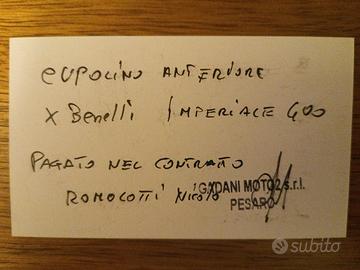 CUPOLINO ANTERIORE
X Benelli IMPERIALE 400
PAGATO NEL CONTRATTO
ROMOLOTTI NICOLO
GADANI MOTO2 s.r.l.
PESARO
subito